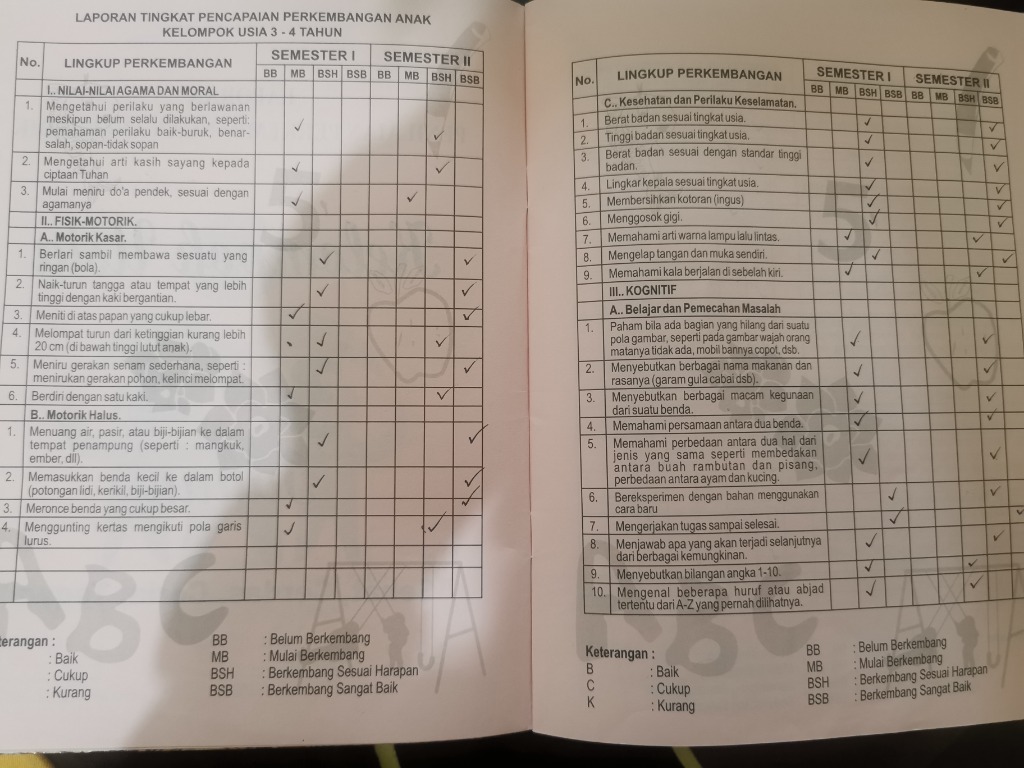 LAPORAN TINGKAT PENCAPAIAN PERKEMBANGAN ANAK
KELOMPOK USIA 3 - 4 TAHUN
No. LINGKUP PERKEMBANGAN SEMESTER I SEMESTER II
BB MB BSH BSB BB MB BSH BSB
I.. NILAI-NILAI AGAMA DAN MORAL
1. Mengetahui perilaku yang berlawanan
meskipun belum selalu dilakukan, seperti:
pemahaman perilaku baik-buruk, benar-
salah, sopan-tidak sopan
2. Mengetahui arti kasih sayang kepada
ciptaan Tuhan
3. Mulai meniru do'a pendek, sesuai dengan
agamanya
II.. FISIK-MOTORIK.
A.. Motorik Kasar.
1. Berlari sambil membawa sesuatu yang
ringan (bola).
2. Naik-turun tangga atau tempat yang lebih
tinggi dengan kaki bergantian.
3. Meniti di atas papan yang cukup lebar.
4. Melompat turun dari ketinggian kurang lebih
20 cm (di bawah tinggi lutut anak).
5. Meniru gerakan senam sederhana, seperti :
menirukan gerakan pohon, kelinci melompat.
6. Berdiri dengan satu kaki.
B.. Motorik Halus.
1. Menuang air, pasir, atau biji-bijian ke dalam
tempat penampung (seperti : mangkuk,
ember, dll).
2. Memasukkan benda kecil ke dalam botol
(potongan lidi, kerikil, biji-bijian).
3. Meronce benda yang cukup besar.
4. Menggunting kertas mengikuti pola garis
lurus.
ABC
eterangan :
: Baik
: Cukup
: Kurang
BB : Belum Berkembang
MB : Mulai Berkembang
BSH : Berkembang Sesuai Harapan
BSB : Berkembang Sangat Baik
No. LINGKUP PERKEMBANGAN SEMESTER I SEMESTER II
BB MB BSH BSB BB MB BSH BSB
C.. Kesehatan dan Perilaku Keselamatan.
1. Berat badan sesuai tingkat usia.
2. Tinggi badan sesuai tingkat usia.
3. Berat badan sesuai dengan standar tinggi
badan.
4. Lingkar kepala sesuai tingkat usia.
5. Membersihkan kotoran (ingus)
6. Menggosok gigi.
7. Memahami arti warna lampu lalu lintas.
8. Mengelap tangan dan muka sendiri.
9. Memahami kala berjalan di sebelah kiri.
III.. KOGNITIF
A.. Belajar dan Pemecahan Masalah
1. Paham bila ada bagian yang hilang dari suatu
pola gambar, seperti pada gambar wajah orang
matanya tidak ada, mobil bannya copot, dsb.
2. Menyebutkan berbagai nama makanan dan
rasanya (garam gula cabai dsb).
3. Menyebutkan berbagai macam kegunaan
dari suatu benda.
4. Memahami persamaan antara dua benda.
5. Memahami perbedaan antara dua hal dari
jenis yang sama seperti membedakan
antara buah rambutan dan pisang,
perbedaan antara ayam dan kucing.
6. Bereksperimen dengan bahan menggunakan
cara baru
7. Mengerjakan tugas sampai selesai.
8. Menjawab apa yang akan terjadi selanjutnya
dari berbagai kemungkinan.
9. Menyebutkan bilangan angka 1-10.
10. Mengenal beberapa huruf atau abjad
tertentu dari A-Z yang pernah dilihatnya.
Keterangan :
B : Baik
C : Cukup
K : Kurang
BB : Belum Berkembang
MB : Mulai Berkembang
BSH : Berkembang Sesuai Harapan
BSB : Berkembang Sangat Baik